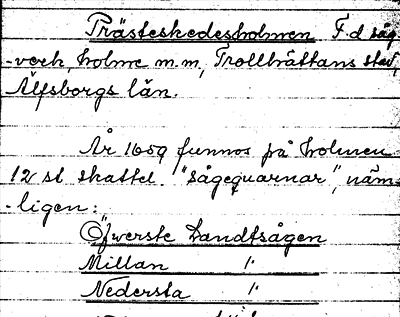 Prästeskedesholmen F.d såg
-verk, holme m.m, Trollhättans stad,
Älfsborgs län.
År 1659 funnos på holmen
12 st skattel. "sågequarnar", näm-
-ligen:
Öfwerste Landtsågen
Millan "
Nedersta "